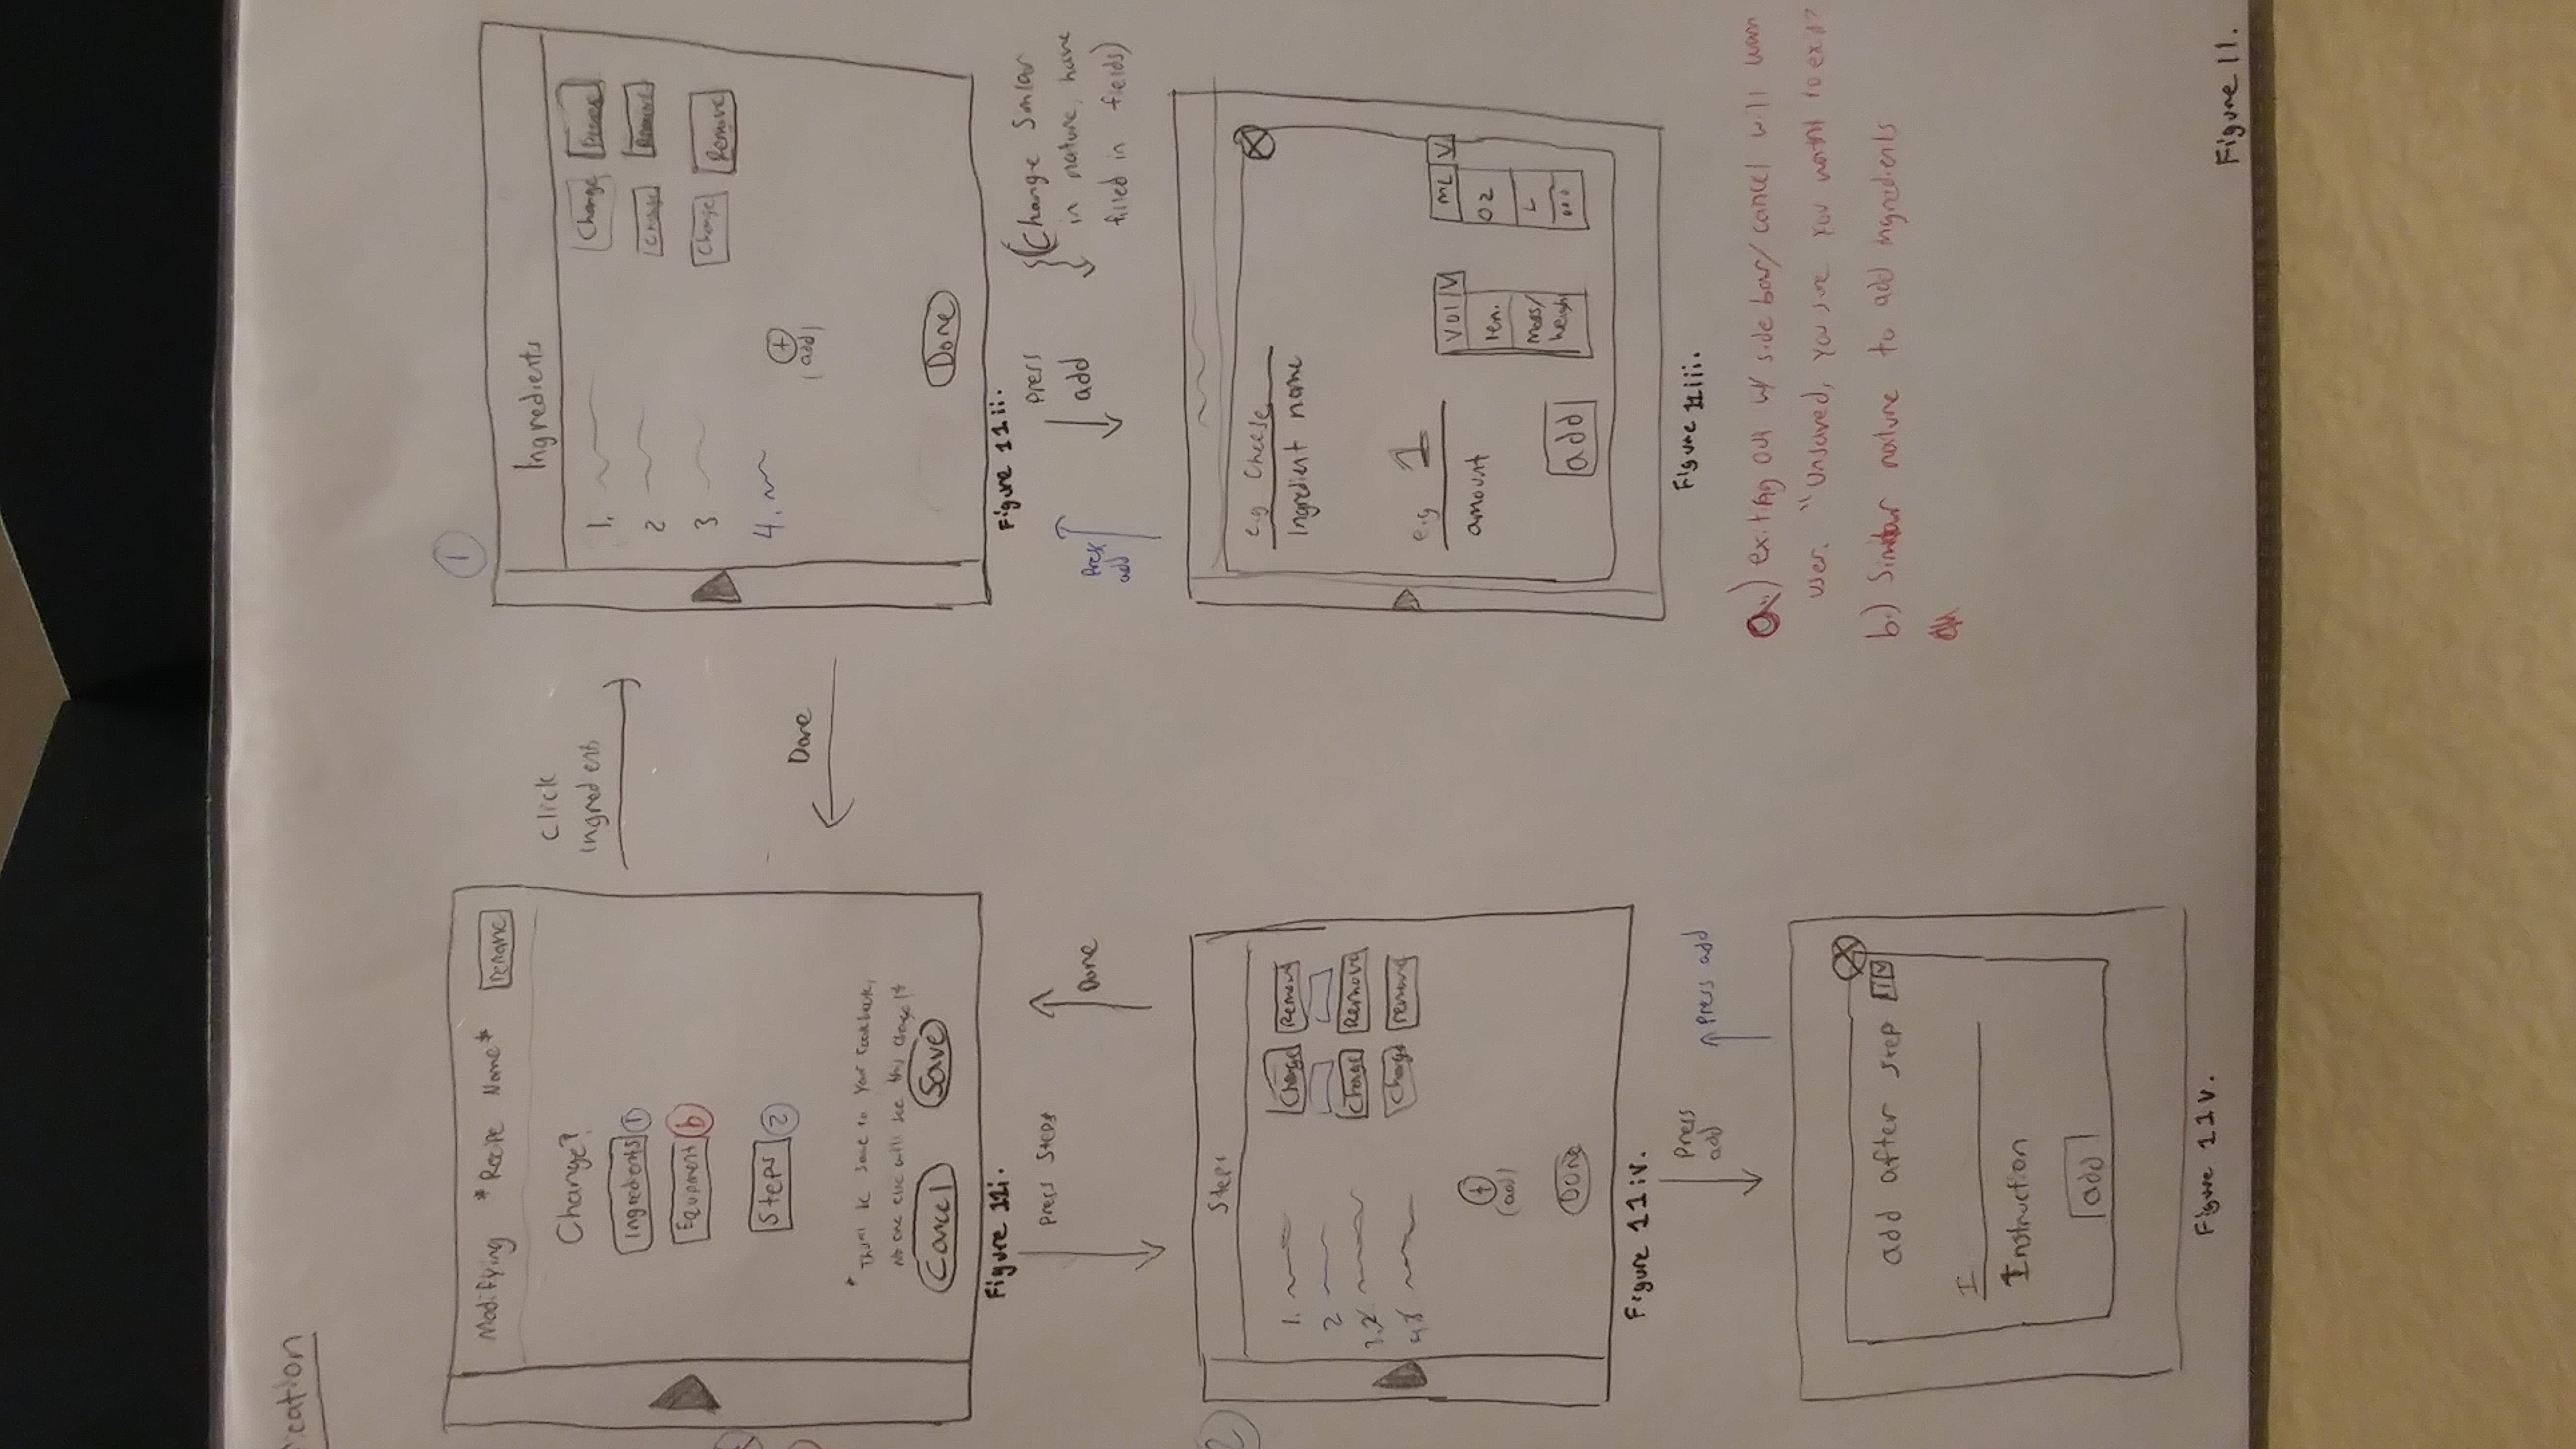 ication
Modifying *Recipe Name* rename
Change?
Ingredients 1
Equipment b
Steps 2
be save to your cookbook,
No one else will see this change!*
Cancel Save
Figure 11i.
Click
ingredients
Done
1
Ingredients
1. Change Remove
2 Change Remove
3 Change Remove
4.
+
(add)
Done
Figure 11ii.
Press Steps
Done
Press
add
press
add
(Change Simlar
in nature, have
filled in fields)
2
Steps
1. Change Remove
2
3. Change Remove
4 Change remove
+
(add)
Done
Figure 11iv.
e.g Cheese
Ingredient name
e.g 1
amount
Vol V
len.
Mass/
weigh
mL V
OZ
L
...
add
Figure 11iii.
Press
add
press add
add after step 1 V
I
Instruction
add
Figure 11v.
a.) exiting out w/ side bar/cancel will warn
user. "Unsaved, you sure you want to exit?
b.) Similar nature to add ingredients
Figure 11.